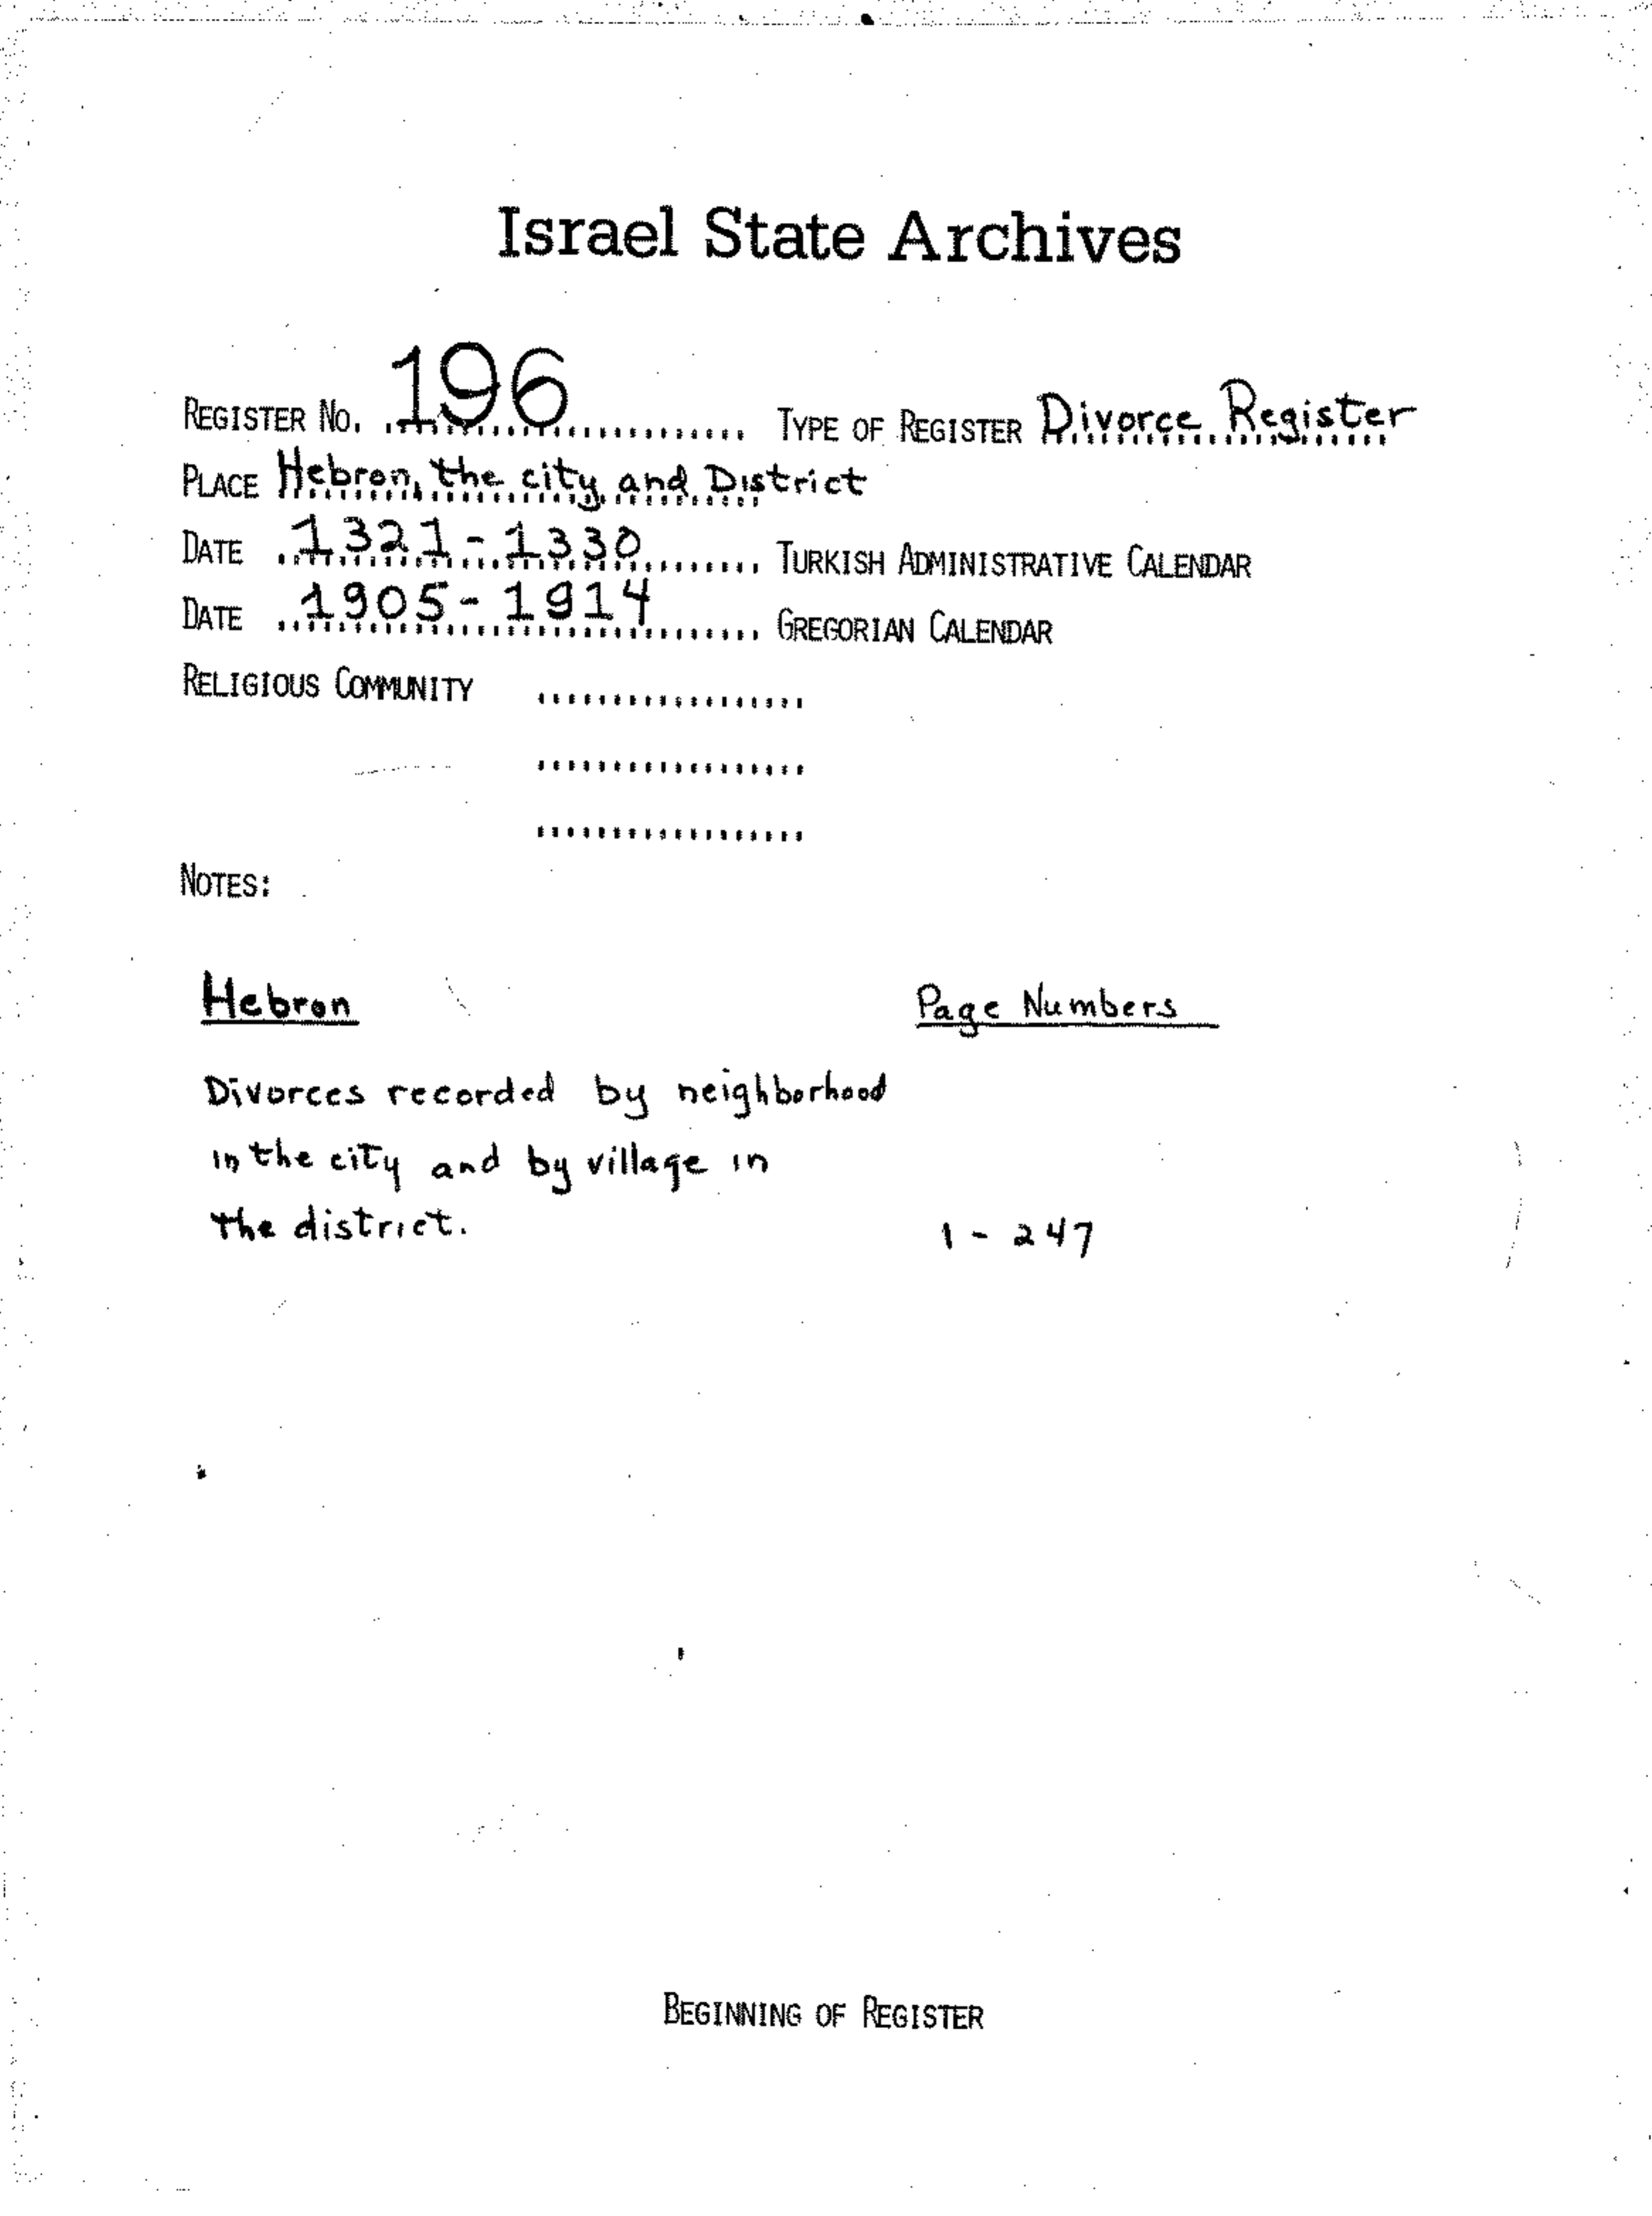 Israel State Archives
REGISTER NO. 196 TYPE OF REGISTER Divorce Register
PLACE Hebron, the city and District
DATE 1321-1330 TURKISH ADMINISTRATIVE CALENDAR
DATE 1905-1914 GREGORIAN CALENDAR
RELIGIOUS COMMUNITY
NOTES:
Hebron Page Numbers
Divorces recorded by neighborhood
in the city and by village in
the district. 1 - 247
BEGINNING OF REGISTER